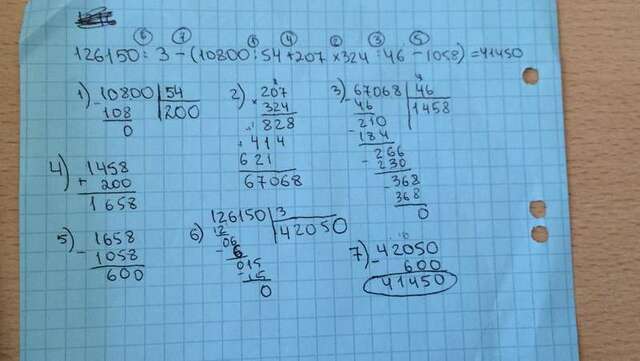 6 7 1 4 2 3 5
126150 : 3 - (10800 : 54 + 207 × 324 : 46 - 1058) = 41450
1) 10800 54
- 108 200
0
2) 207
× 324
828
+ 414
621
67068
3) 67068 46
- 46 1458
210
- 184
266
- 230
368
- 368
0
4) 1458
+ 200
1658
5) 1658
- 1058
600
6) 126150 3
12 42050
06
- 6
015
- 15
0
7) 42050
- 600
41450